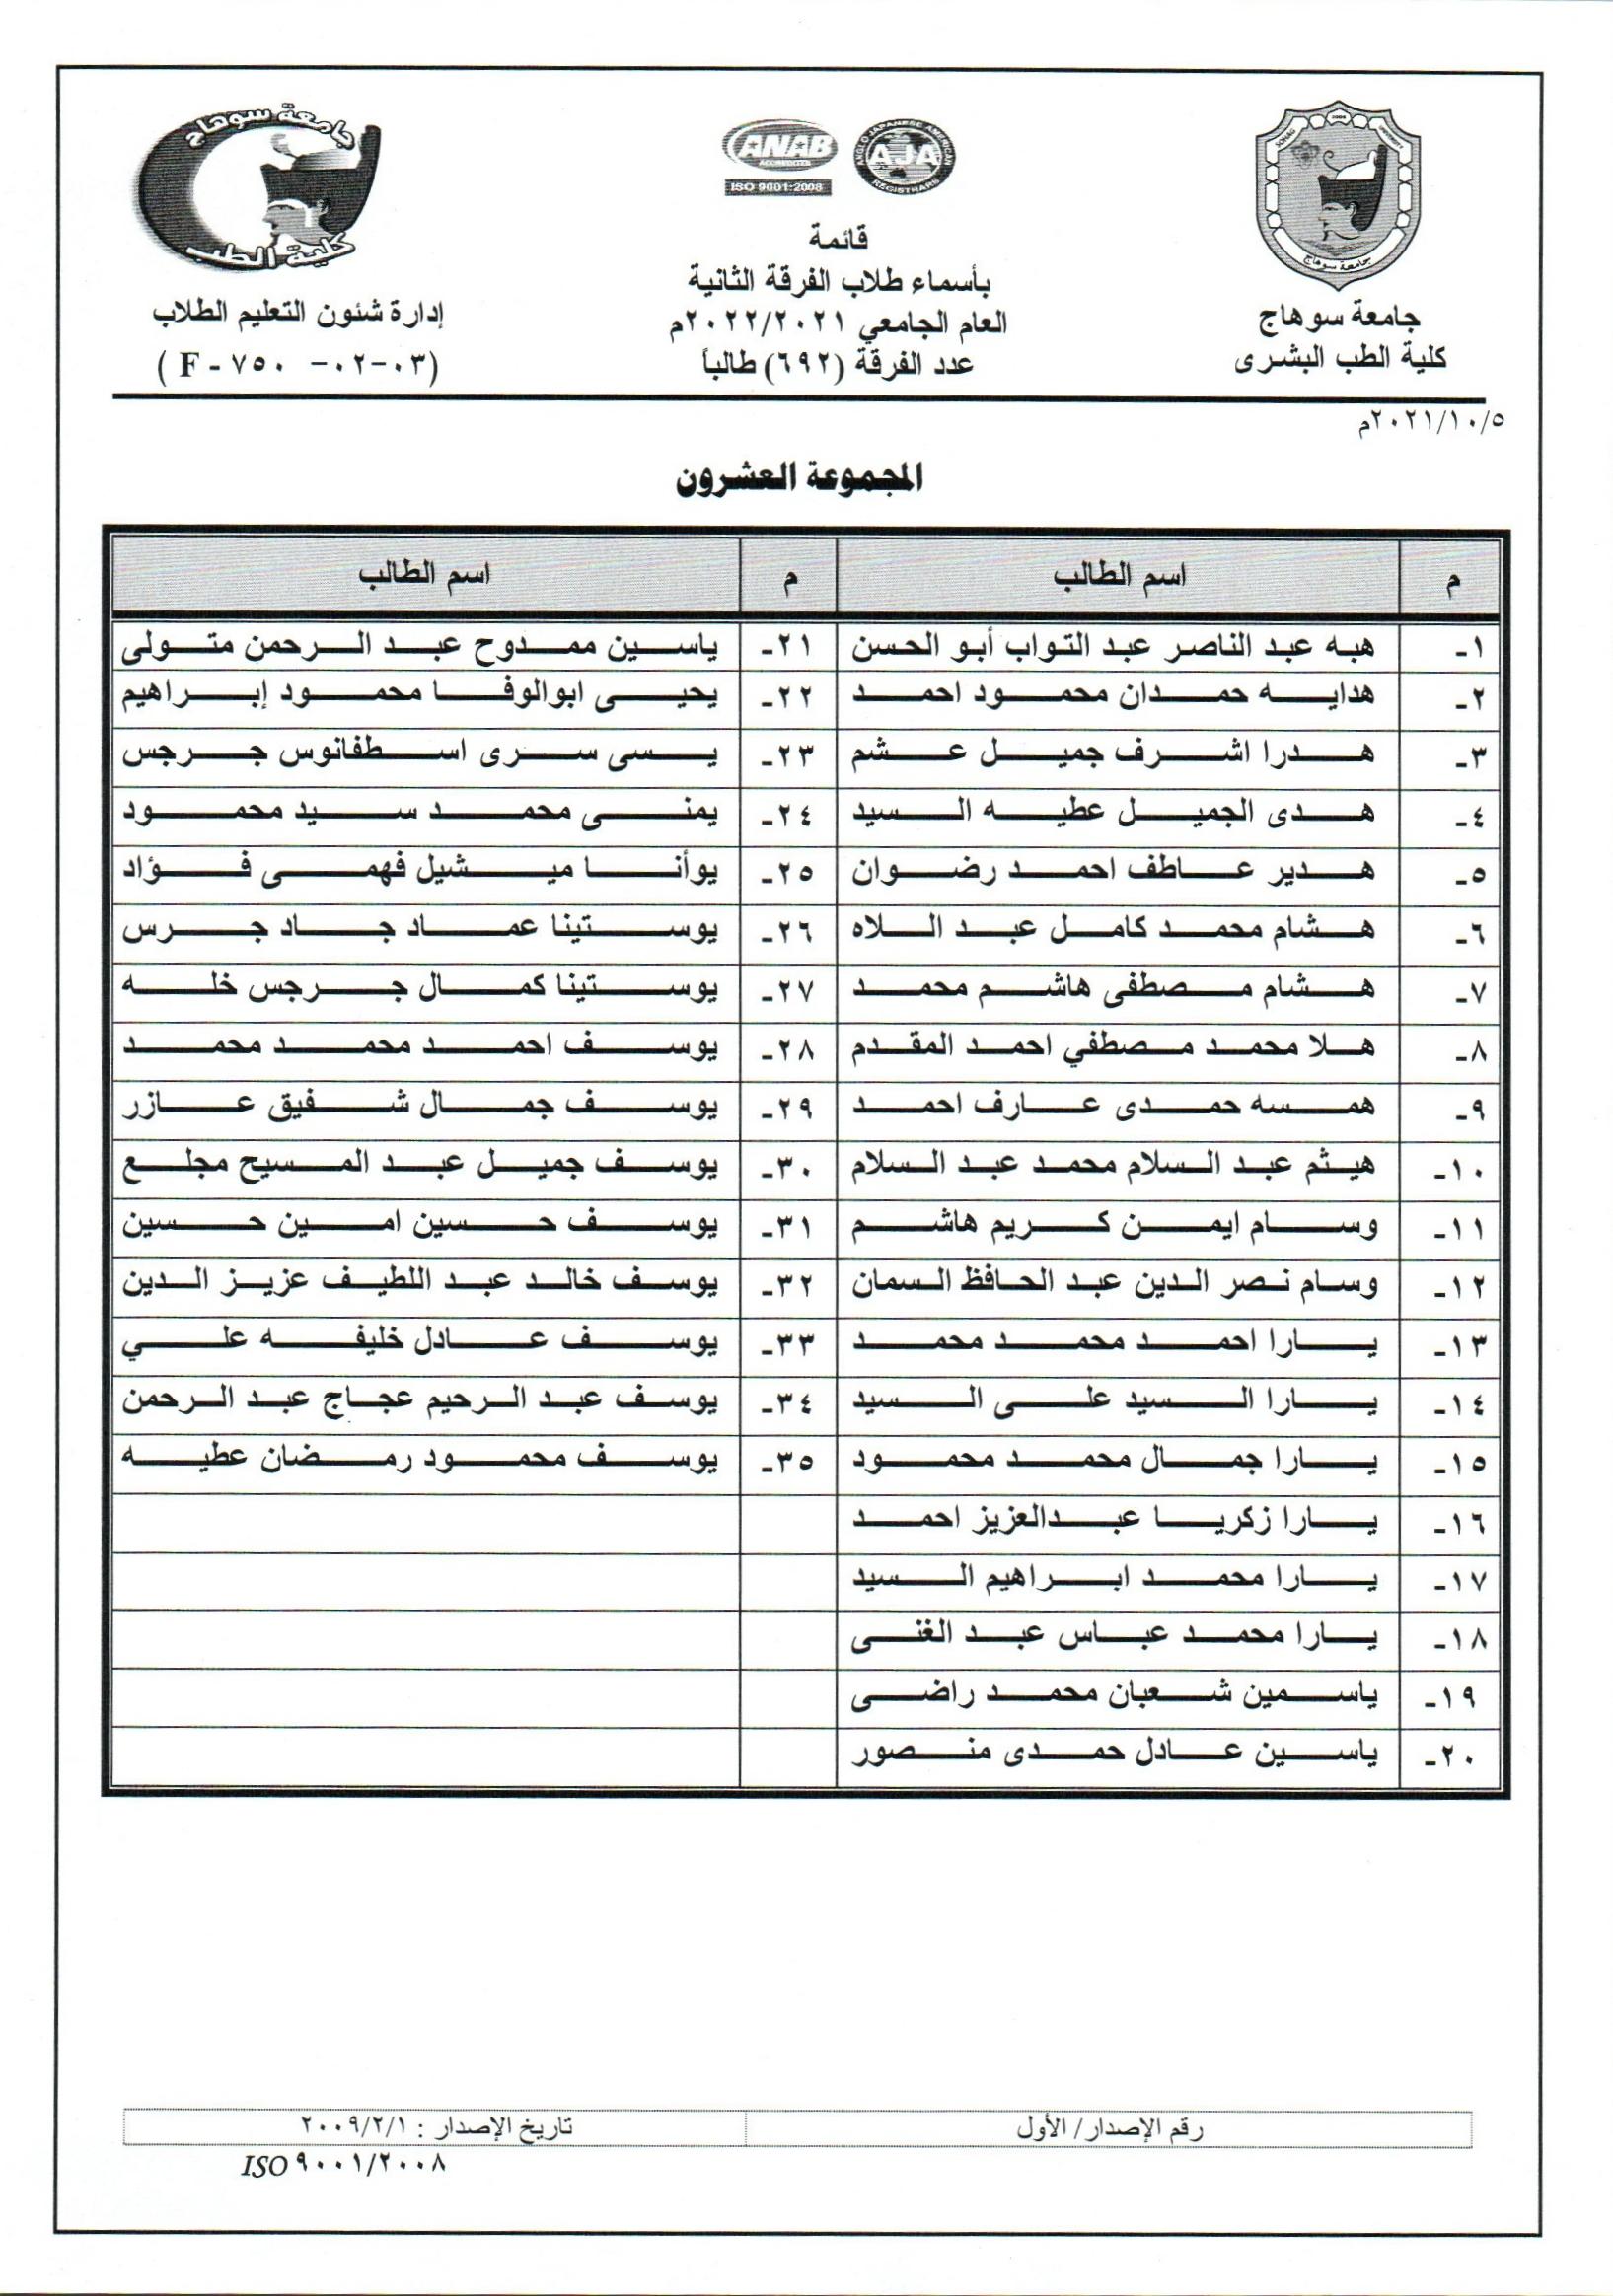 جامعة سوهاج
كلية الطب
إدارة شئون التعليم الطلاب
(F - ٧٥٠ -٠٢-٠٣)
ANAB
ACCREDITED
ISO 9001:2008
ANGLO JAPANESE AMERICAN
AJA
REGISTRARS
قائمة
بأسماء طلاب الفرقة الثانية
العام الجامعي ٢٠٢٢/٢٠٢١م
عدد الفرقة (٦٩٢) طالباً
SOHAG UNIVERSITY
جامعة سوهاج
جامعة سوهاج
كلية الطب البشرى
٢٠٢١/١٠/٥م
المجموعة العشرون
م اسم الطالب م اسم الطالب
١- هبه عبد الناصر عبد التواب أبو الحسن ٢١- ياسين ممدوح عبد الرحمن متولى
٢- هدايه حمدان محمود احمد ٢٢- يحيى ابوالوفا محمود إبراهيم
٣- هدرا اشرف جميل عشم ٢٣- يسى سرى اسطفانوس جرجس
٤- هدى الجميل عطيه السيد ٢٤- يمنى محمد سيد محمود
٥- هدير عاطف احمد رضوان ٢٥- يوأنا ميشيل فهمى فؤاد
٦- هشام محمد كامل عبد اللاه ٢٦- يوستينا عماد جاد جرس
٧- هشام مصطفى هاشم محمد ٢٧- يوستينا كمال جرجس خله
٨- هلا محمد مصطفي احمد المقدم ٢٨- يوسف احمد محمد محمد
٩- همسه حمدى عارف احمد ٢٩- يوسف جمال شفيق عازر
١٠- هيثم عبد السلام محمد عبد السلام ٣٠- يوسف جميل عبد المسيح مجلع
١١- وسام ايمن كريم هاشم ٣١- يوسف حسين امين حسين
١٢- وسام نصر الدين عبد الحافظ السمان ٣٢- يوسف خالد عبد اللطيف عزيز الدين
١٣- يارا احمد محمد محمد ٣٣- يوسف عادل خليفه علي
١٤- يارا السيد على السيد ٣٤- يوسف عبد الرحيم عجاج عبد الرحمن
١٥- يارا جمال محمد محمود ٣٥- يوسف محمود رمضان عطيه
١٦- يارا زكريا عبدالعزيز احمد
١٧- يارا محمد ابراهيم السيد
١٨- يارا محمد عباس عبد الغنى
١٩- ياسمين شعبان محمد راضى
٢٠- ياسين عادل حمدى منصور
رقم الإصدار/ الأول تاريخ الإصدار : ٢٠٠٩/٢/١
ISO ٩٠٠١/٢٠٠٨